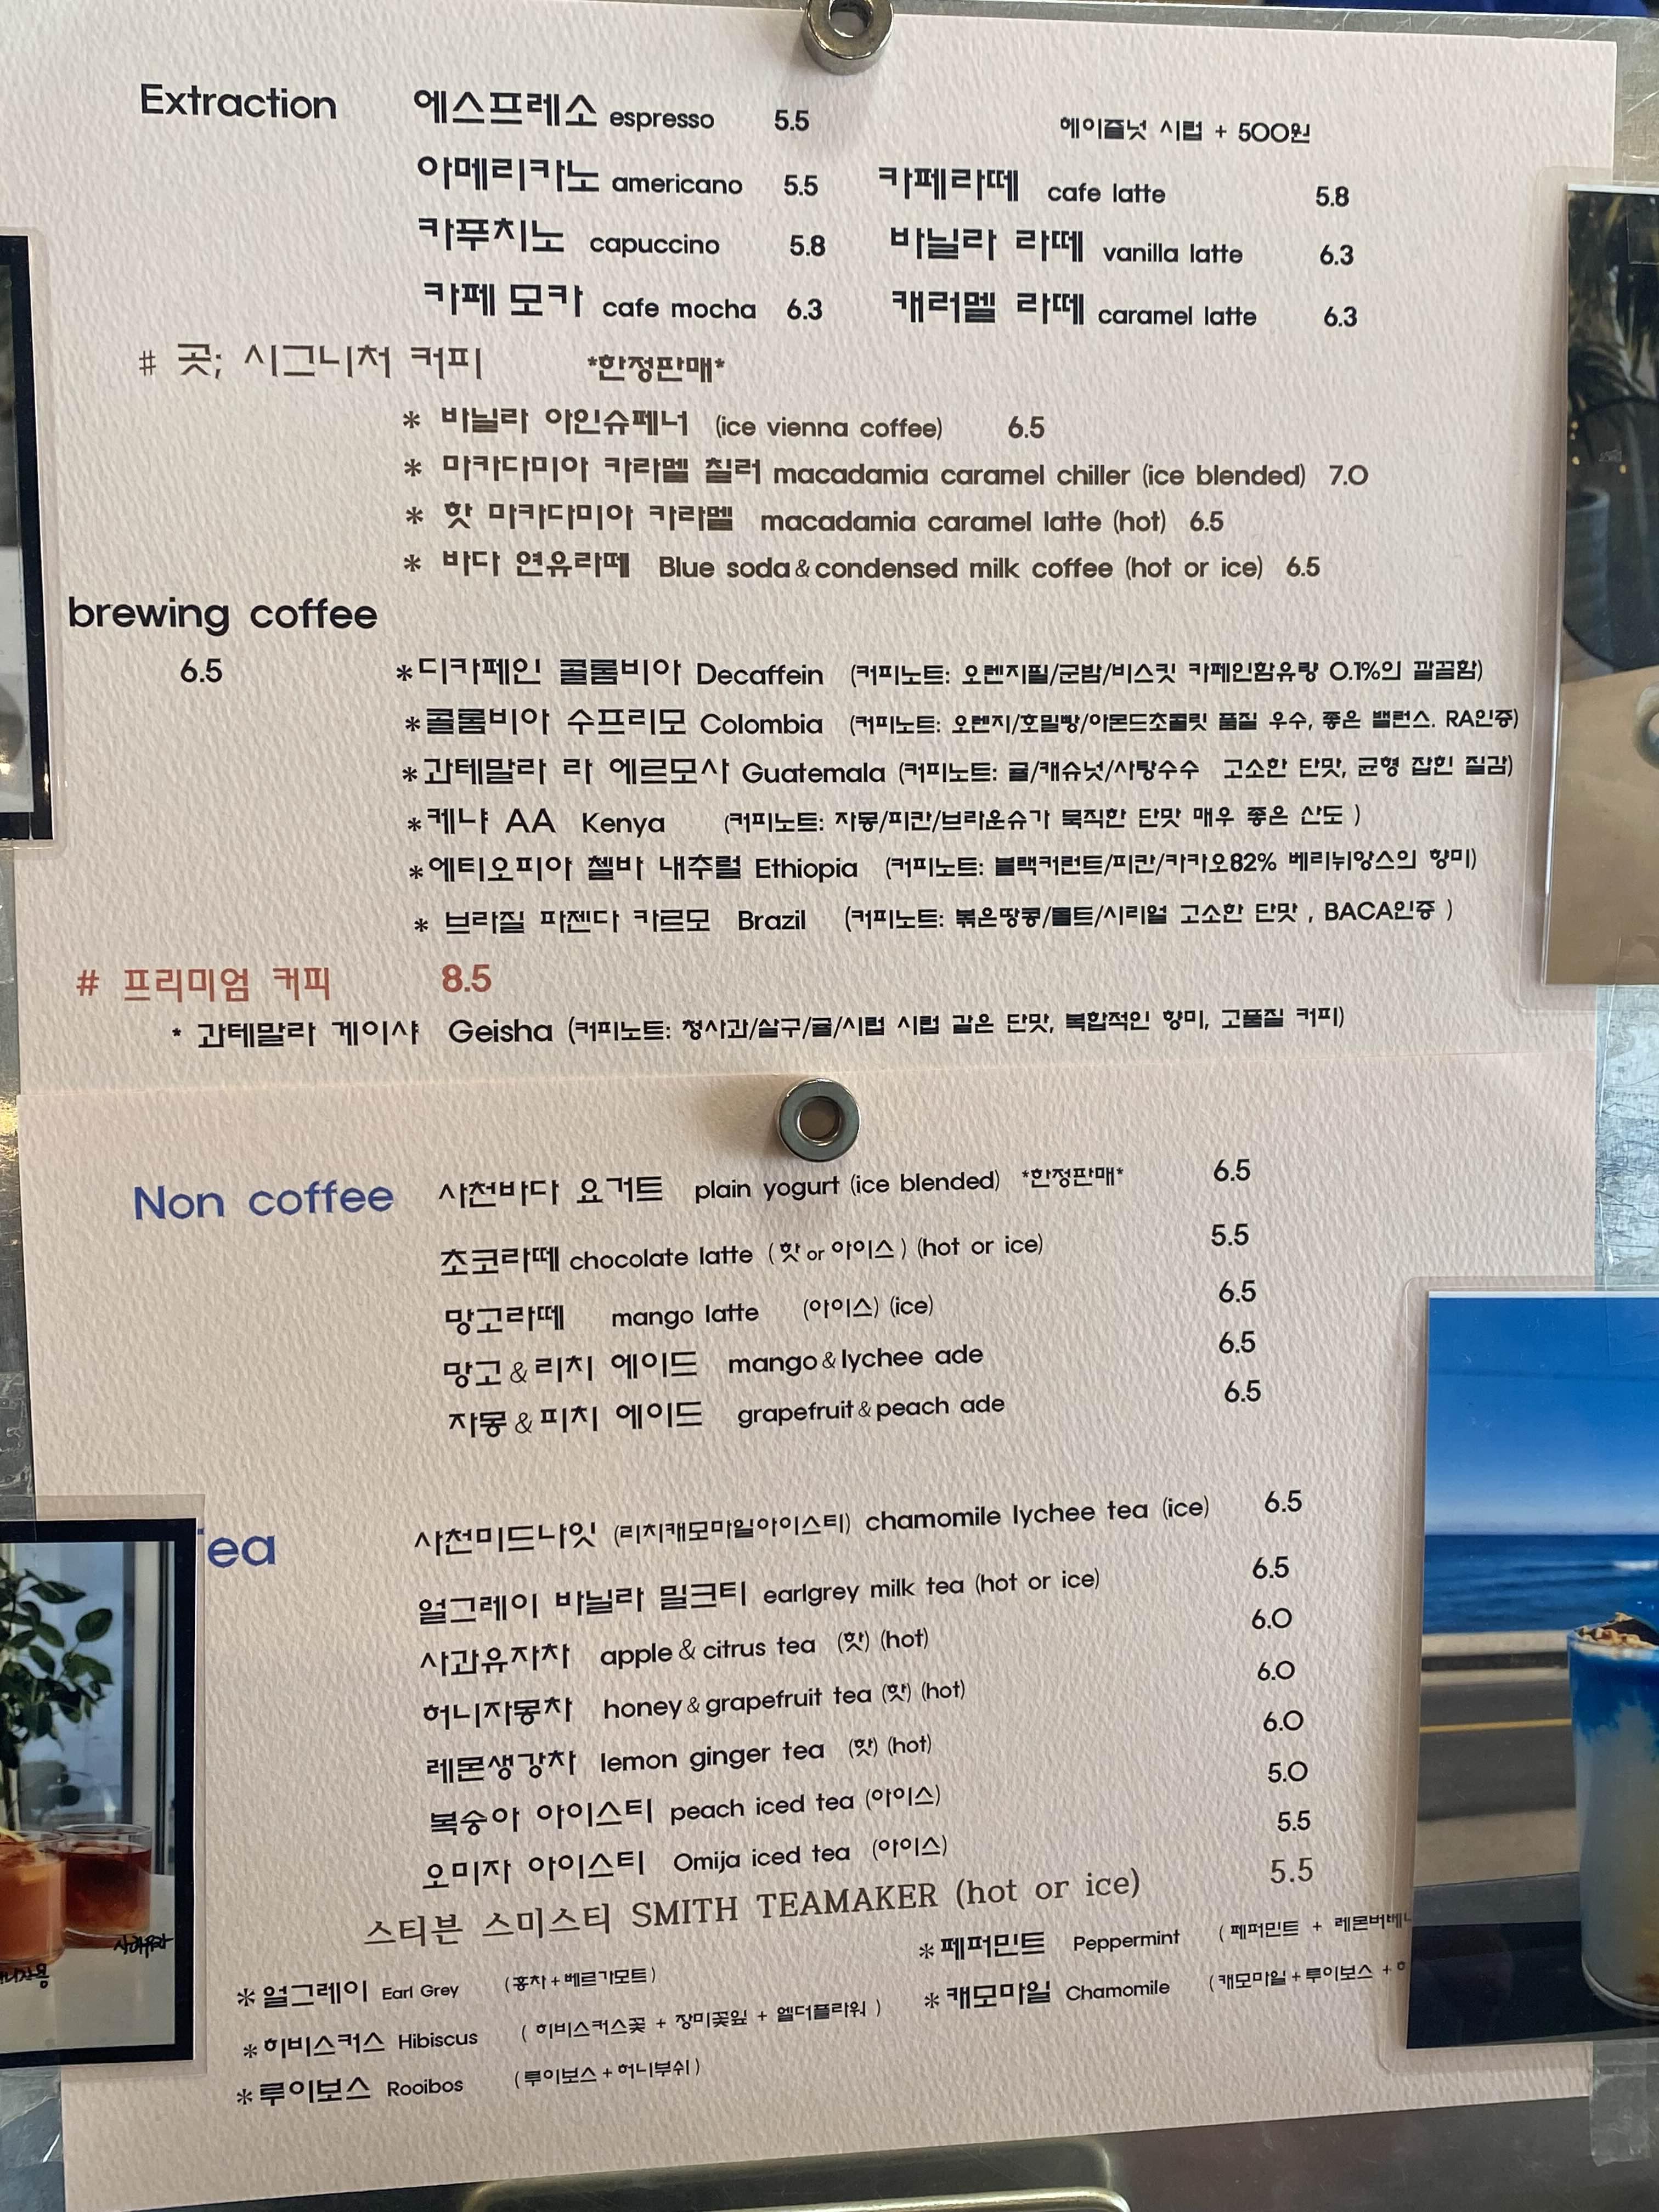 Extraction 에스프레소 espresso 5.5 헤이즐넛 시럽 + 500원
아메리카노 americano 5.5 카페라떼 cafe latte 5.8
카푸치노 capuccino 5.8 바닐라 라떼 vanilla latte 6.3
카페 모카 cafe mocha 6.3 캐러멜 라떼 caramel latte 6.3
# 곳; 시그니처 커피 *한정판매*
* 바닐라 아인슈페너 (ice vienna coffee) 6.5
* 마카다미아 카라멜 칠러 macadamia caramel chiller (ice blended) 7.0
* 핫 마카다미아 카라멜 macadamia caramel latte (hot) 6.5
* 바다 연유라떼 Blue soda & condensed milk coffee (hot or ice) 6.5
brewing coffee
6.5 *디카페인 콜롬비아 Decaffein (커피노트: 오렌지필/군밤/비스킷 카페인함유량 0.1%의 깔끔함)
*콜롬비아 수프리모 Colombia (커피노트: 오렌지/호밀빵/아몬드초콜릿 품질 우수, 좋은 밸런스. RA인증)
*과테말라 라 에르모사 Guatemala (커피노트: 귤/캐슈넛/사탕수수 고소한 단맛, 균형 잡힌 질감)
*케냐 AA Kenya (커피노트: 자몽/피칸/브라운슈가 묵직한 단맛 매우 좋은 산도 )
*에티오피아 첼바 내추럴 Ethiopia (커피노트: 블랙커런트/피칸/카카오82% 베리뉘앙스의 향미)
* 브라질 파젠다 카르모 Brazil (커피노트: 볶은땅콩/몰트/시리얼 고소한 단맛 , BACA인증 )
# 프리미엄 커피 8.5
* 과테말라 게이샤 Geisha (커피노트: 청사과/살구/귤/시럽 시럽 같은 단맛, 복합적인 향미, 고품질 커피)
Non coffee 사천바다 요거트 plain yogurt (ice blended) *한정판매* 6.5
초코라떼 chocolate latte ( 핫 or 아이스 ) (hot or ice) 5.5
망고라떼 mango latte (아이스) (ice) 6.5
망고 & 리치 에이드 mango & lychee ade 6.5
자몽 & 피치 에이드 grapefruit & peach ade 6.5
ea 사천미드나잇 (리치캐모마일아이스티) chamomile lychee tea (ice) 6.5
얼그레이 바닐라 밀크티 earlgrey milk tea (hot or ice) 6.5
사과유자차 apple & citrus tea (핫) (hot) 6.0
허니자몽차 honey & grapefruit tea (핫) (hot) 6.0
레몬생강차 lemon ginger tea (핫) (hot) 6.0
복숭아 아이스티 peach iced tea (아이스) 5.0
오미자 아이스티 Omija iced tea (아이스) 5.5
스티븐 스미스티 SMITH TEAMAKER (hot or ice) 5.5
*얼그레이 Earl Grey (홍차 + 베르가모트) *페퍼민트 Peppermint ( 페퍼민트 + 레몬버베
*히비스커스 Hibiscus ( 히비스커스꽃 + 장미꽃잎 + 엘더플라워 ) *캐모마일 Chamomile (캐모마일 + 루이보스 +
*루이보스 Rooibos (루이보스 + 허니부쉬)